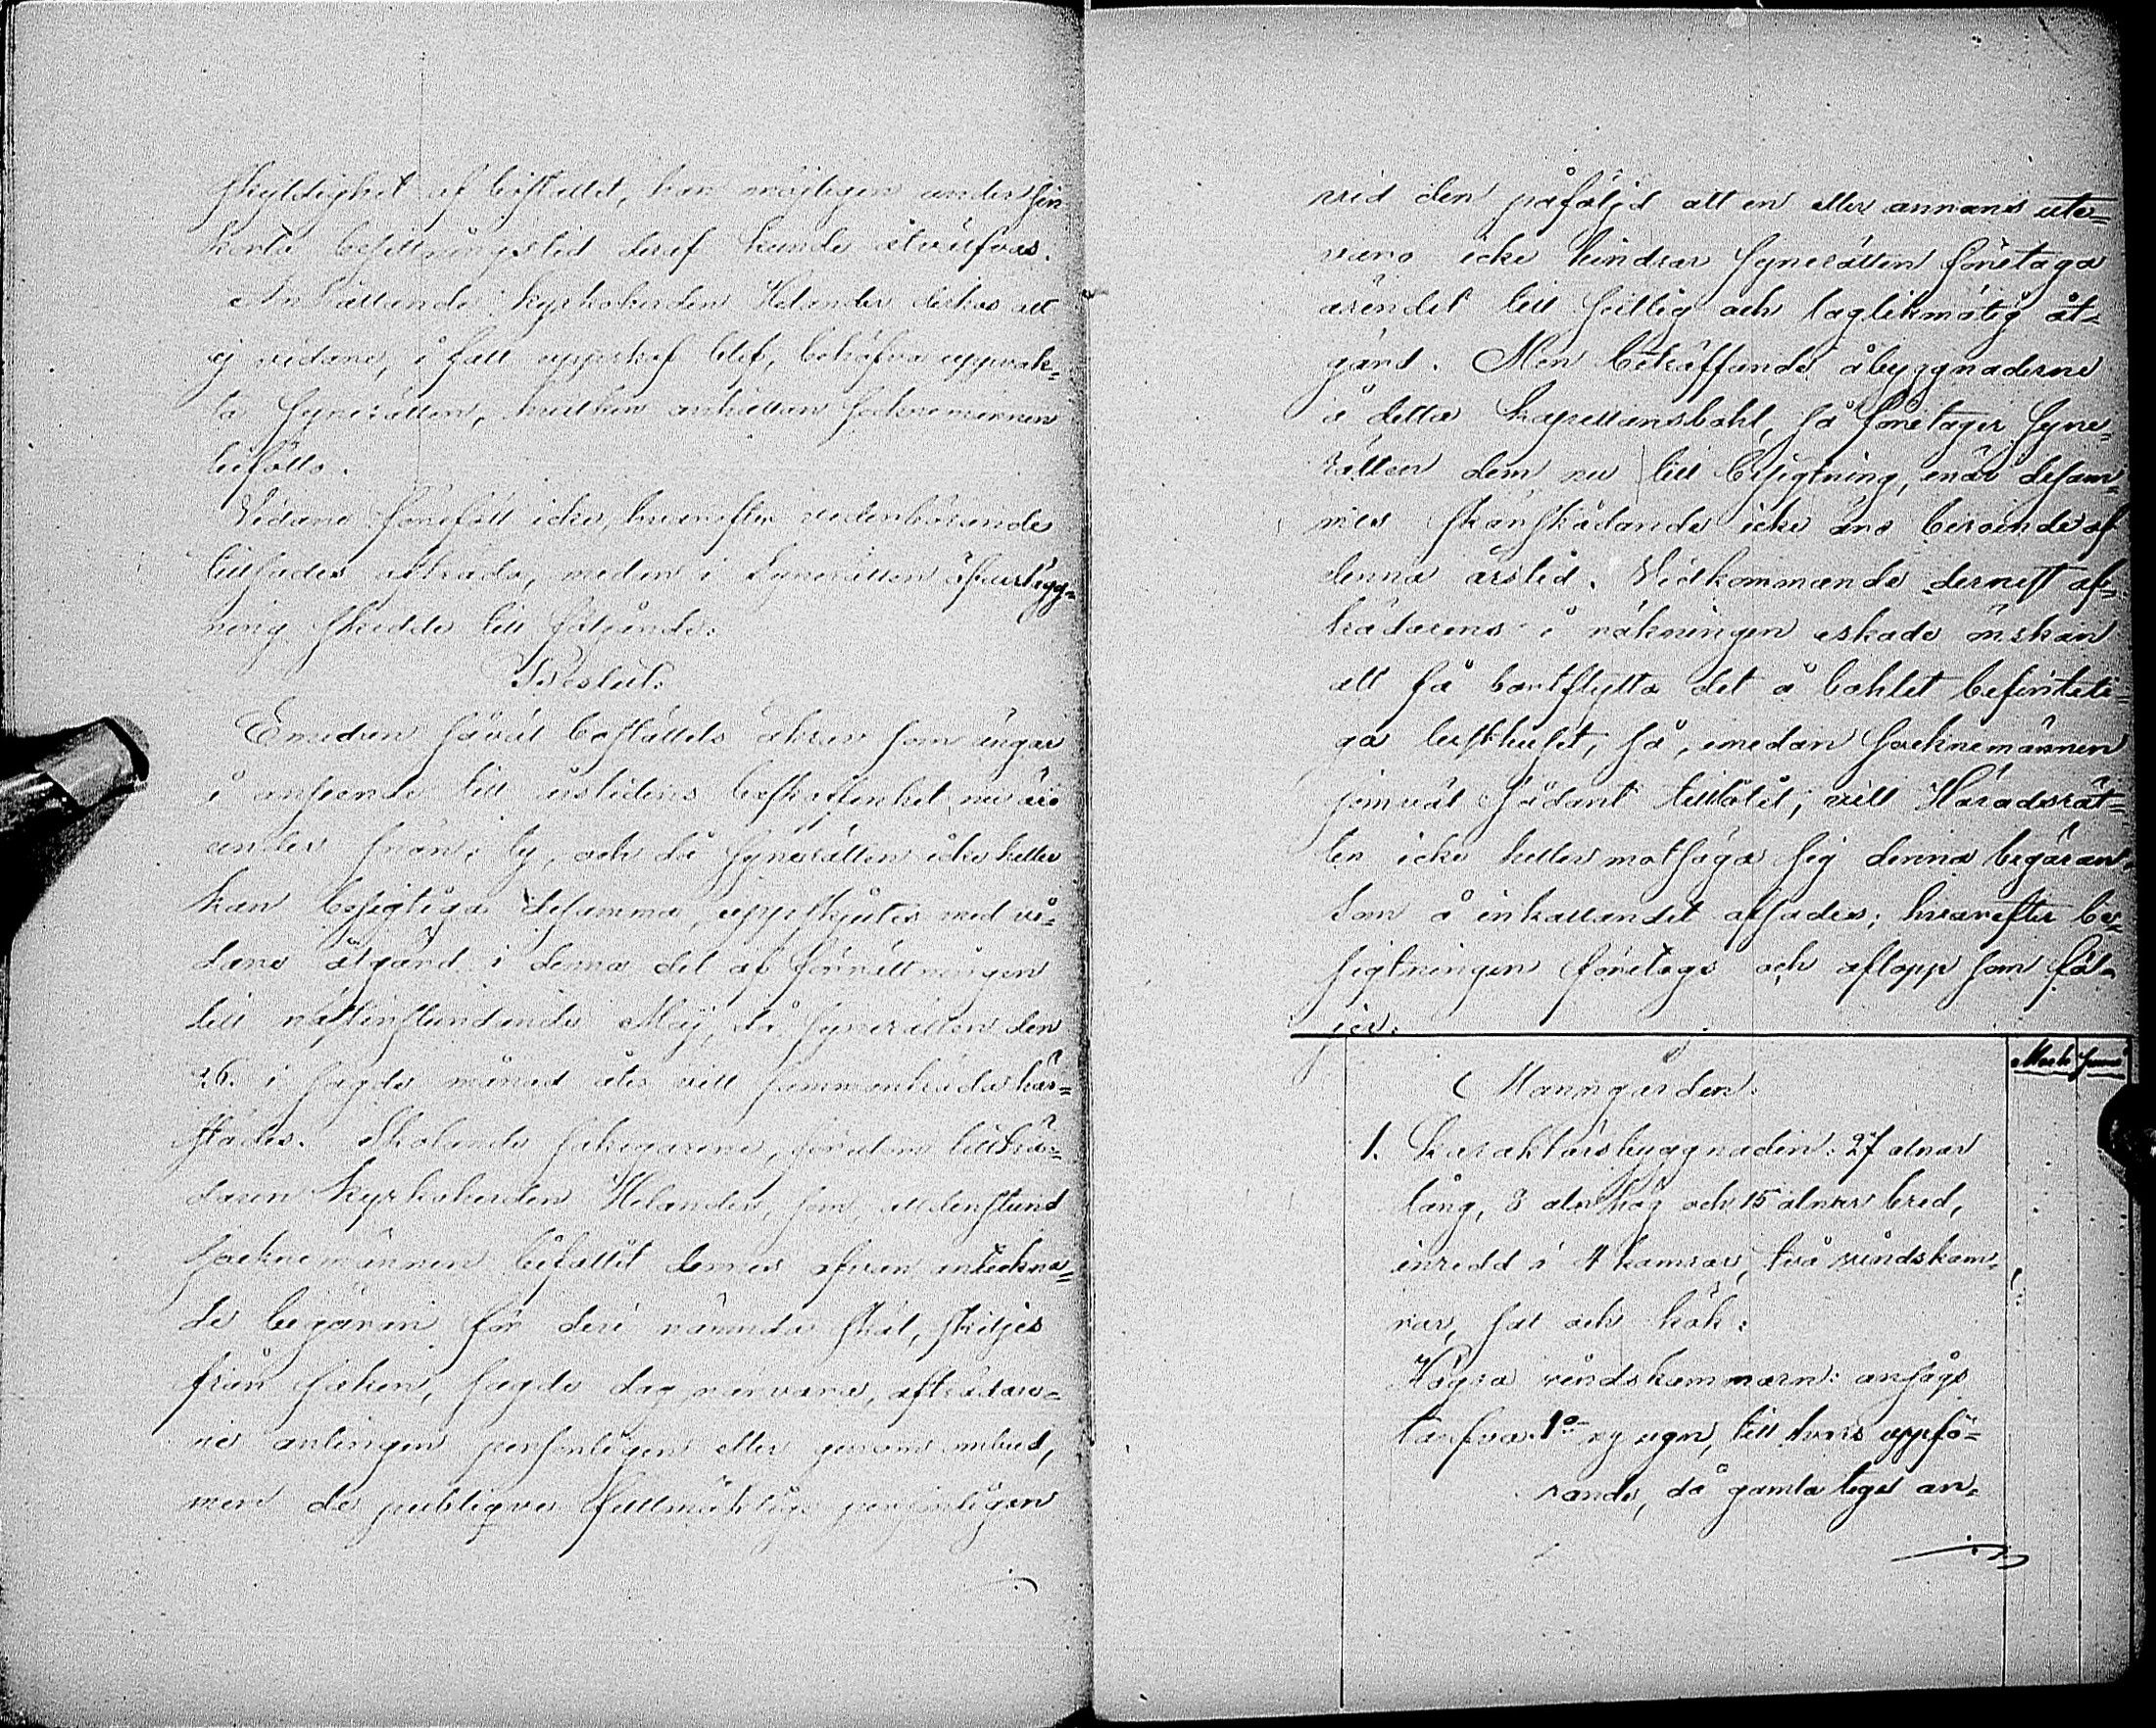 skyldighet af bostället, han möjligen under sin
korta besittningstid deraf kunde åtnjutas.
Anhållande kyrkoherden Helander derhos att
ej vidare, i fall uppskof blef, behöfva uppvak-
ta Synerätten, hvilken anhållan socknemännen
biföllo.
Vidare föreföll icke, hvarefter vederbörande
tillsades afträda, medan i Synerätten öfverlägg-
ning skedde till följande:
Beslut:
Emedan såväl boställets åkrar som ängar
i anseende till årstidens beskaffenhet nu äro
under snön, ty, och då synerätten icke heller
kan besigtiga desamma, uppskjutes med vi-
dare åtgärd i denna del af förrättningen
till nästinstundande Maj, då synerätten den
26. i sagde månad åter vill sammanträda här-
städes. Skolande sakegarene, förutom tillträ-
daren kyrkoherden Helander, som, alldenstund
socknemännen bifallit dennes ofvan anteckna-
de begäran för deri nämnda skäl, skiljes
från saken, sagde dag närvara, afträdare-
ne antingen personligen eller genom ombud,
men de publique fullmäktige personligen
vid den påföljd att en eller annans ute-
varo icke hindrar synerätten företaga
ärendet till slutlig och laglikmätig åt-
gärd. Men beträffande åbyggnaderne
å detta kapellansbohl, så företager Syne-
rätten dem nu till besigtning, enär desam-
mes skärskådande icke äro beroende af
denna årstid. Vidkommande dernäst af-
trädarens i räkningen äskade önskan
att få bortflytta det å bohlet befintli-
ga lusthuset, så, emedan socknemännen
jemväl sådant tillåtit, vill Häradsrät-
ten icke heller motsäga sig denna begäran,
Som å inkallandet afsades; hvarefter be-
sigtningen företogs och aflopp som föl-
jer:
Mark penni
Manngården:
1. Karaktärsbyggnaden: 27 alnar
lång, 8 alnr hög och 15 alnar bred,
inredd i 4 kamrar, två vindskam-
rar, sal och kök:
Högra vindskammarn: ansågs
tarfva 1o ny ugn, till hvars uppfö-
rande, då gamla teget an-